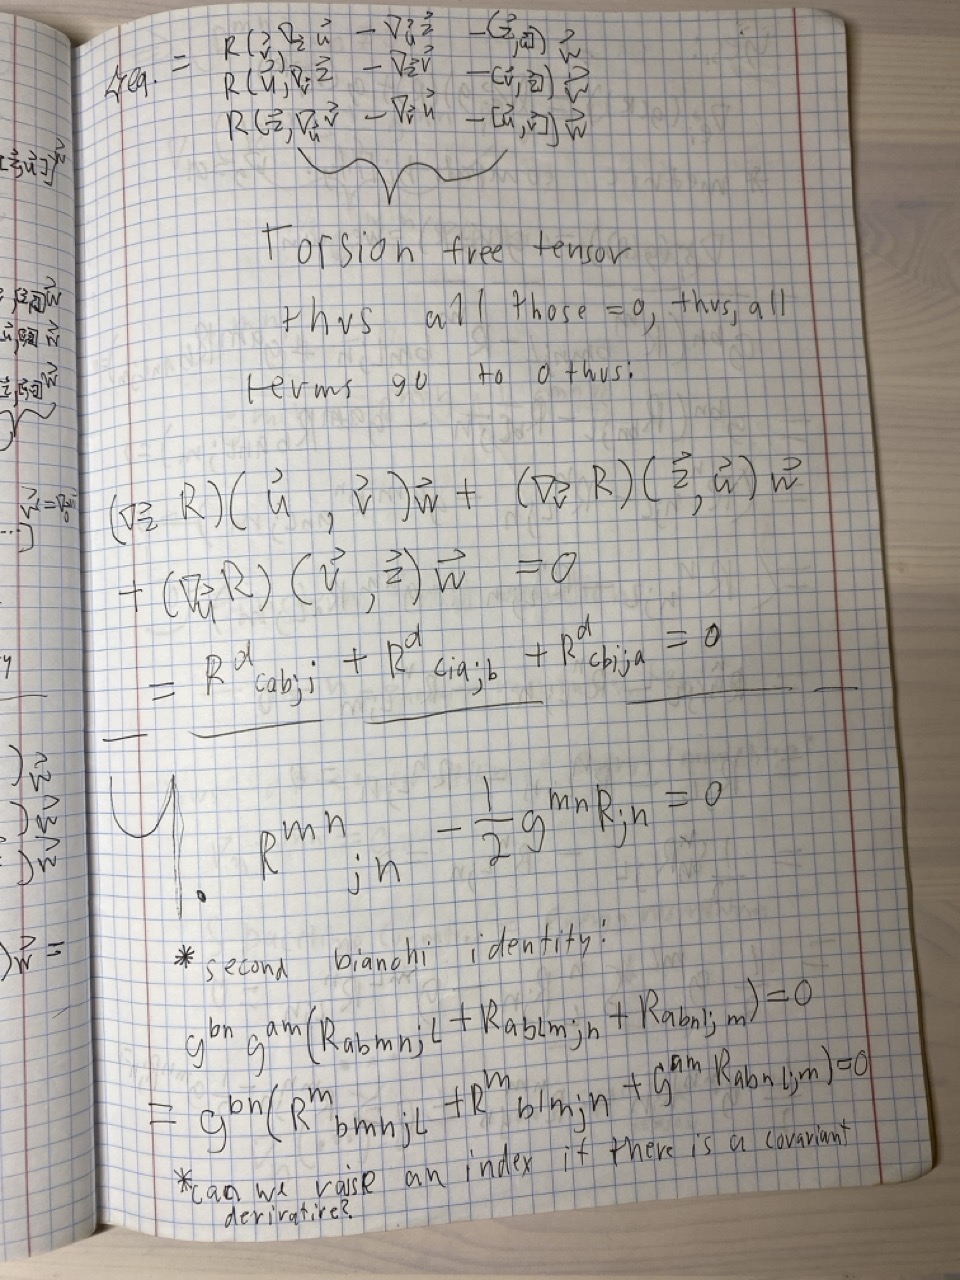 = R(v⃗, ∇_z⃗ u⃗ − ∇_u⃗ z⃗ − [z⃗,u⃗]) w⃗
R(u⃗, ∇_v⃗ z⃗ − ∇_z⃗ v⃗ − [v⃗,z⃗]) w⃗
R(z⃗, ∇_u⃗ v⃗ − ∇_v⃗ u⃗ − [u⃗,v⃗]) w⃗
Torsion free tensor
thus all those = 0, thus, all
terms go to 0 thus:
(∇_z⃗ R)(u⃗, v⃗)w⃗ + (∇_v⃗ R)(z⃗, u⃗)w⃗
+ (∇_u⃗ R)(v⃗, z⃗)w⃗ = 0
= R^d_{cab;i} + R^d_{cia;b} + R^d_{cbi;a} = 0
4. R^{mn}_{;n} − 1/2 g^{mn} R_{;n} = 0
* second bianchi identity:
g^{bn} g^{am}(R_{abmn;l} + R_{ablm;n} + R_{abnl;m}) = 0
= g^{bn}(R^m_{bmn;l} + R^m_{blm;n} + g^{am} R_{abnl;m}) = 0
*can we raise an index if there is a covariant
derivative?